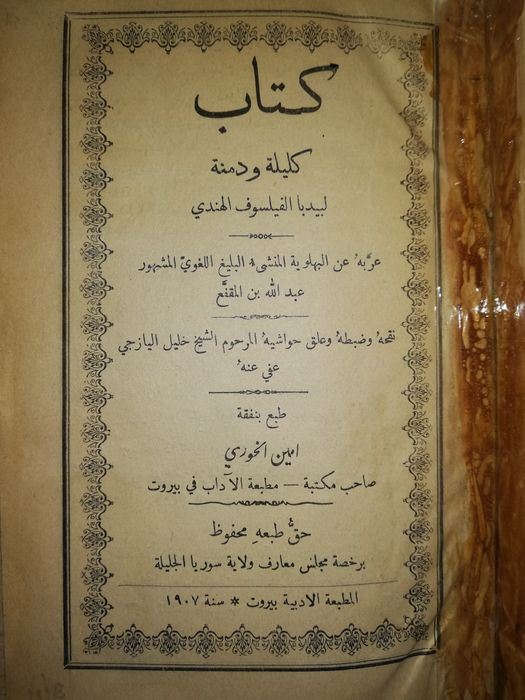 كتاب
كليلة ودمنة
لبيدبا الفيلسوف الهندي
عرَّبهُ عن البهلوية المنشىء البليغ اللغويّ المشهور
عبد الله بن المقفَّع
نقحهُ وضبطهُ وعلق حواشيهُ المرحوم الشيخ خليل اليازجي
عفي عنهُ
طبع بنفقة
امين الخوري
صاحب مكتبة — مطبعة الآداب في بيروت
حقُّ طبعهِ محفوظ
برخصة مجلس معارف ولاية سوريا الجليلة
المطبعة الادبية بيروت * سنة ١٩٠٧